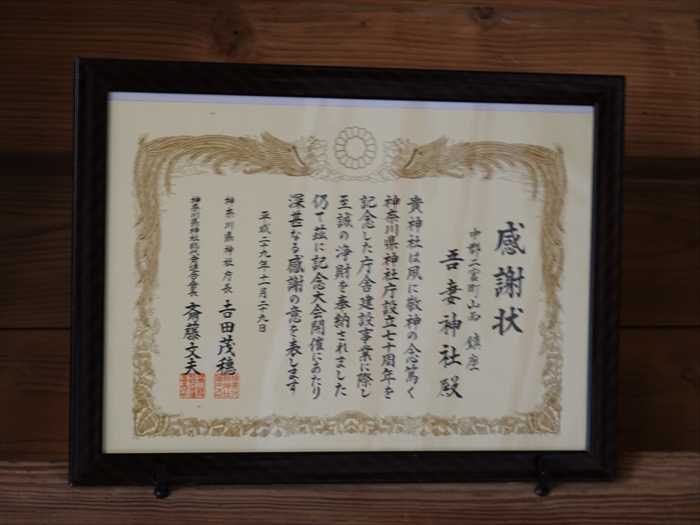 感謝状
中郡二宮町山西 鎮座
吾妻神社殿
貴神社は夙に敬神の念篤く
神奈川県神社庁設立七十周年を
記念した庁舎建設事業に際し
至誠の浄財を奉納されました
仍て茲に記念大会開催にあたり
深甚なる感謝の意を表します
平成二十九年十一月二十九日
神奈川県神社庁長 吉田茂穗
神奈川県神社総代会連合会長 齋藤文夫